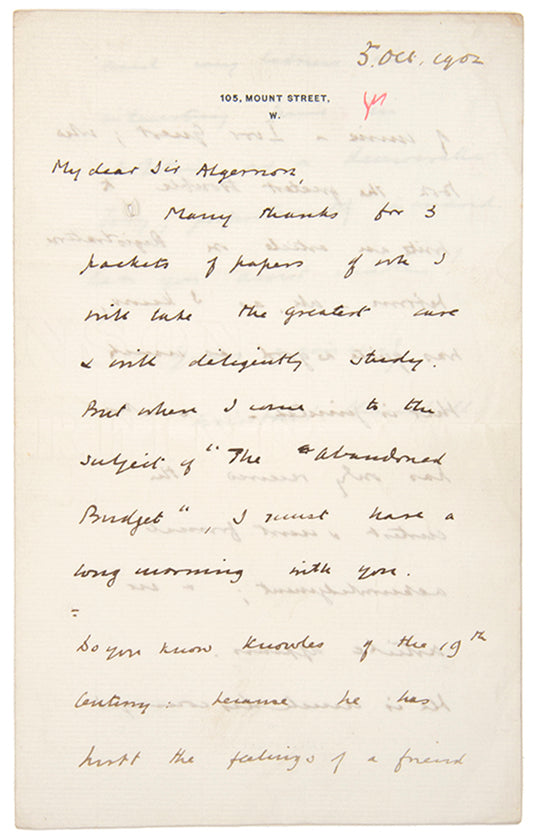 5. Oct. 1902
105, MOUNT STREET,
W.
My dear Sir Algernon,
Many thanks for 3
packets of papers of wh I
will take the greatest care
& will diligently study.
But where I come to the
subject of "The Abandoned
Budget", I must have a
long morning with you.
=
Do you know Knowles of the 19th
Century: because he has
hurt the feelings of a friend